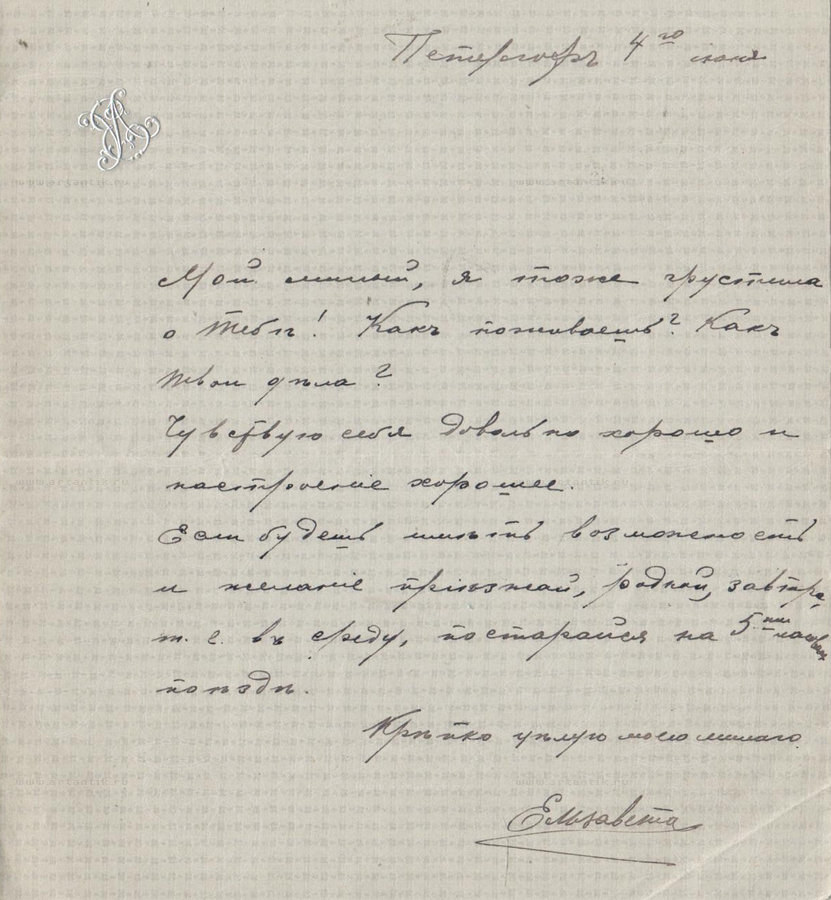 Петергофъ 4го іюня
Мой милый, я тоже грустила
о Тебѣ! Какъ поживаешь? Какъ
твои дѣла?
Чувствую себя довольно хорошо и
настроеніе хорошее.
Если будешь имѣть возможность
и желаніе пріѣзжай, родной, завтре,
т. е. въ среду, постарайся на 5ти часовых
поѣздѣ.
Крѣпко цѣлую моего милаго.
Ельзавета